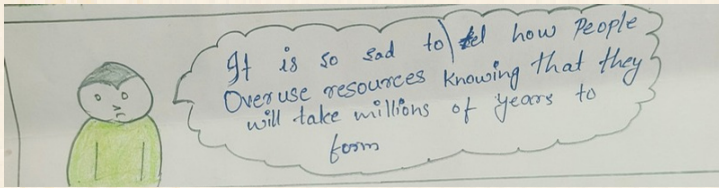 It is so sad to how People
Overuse resources knowing that they
will take millions of years to
form